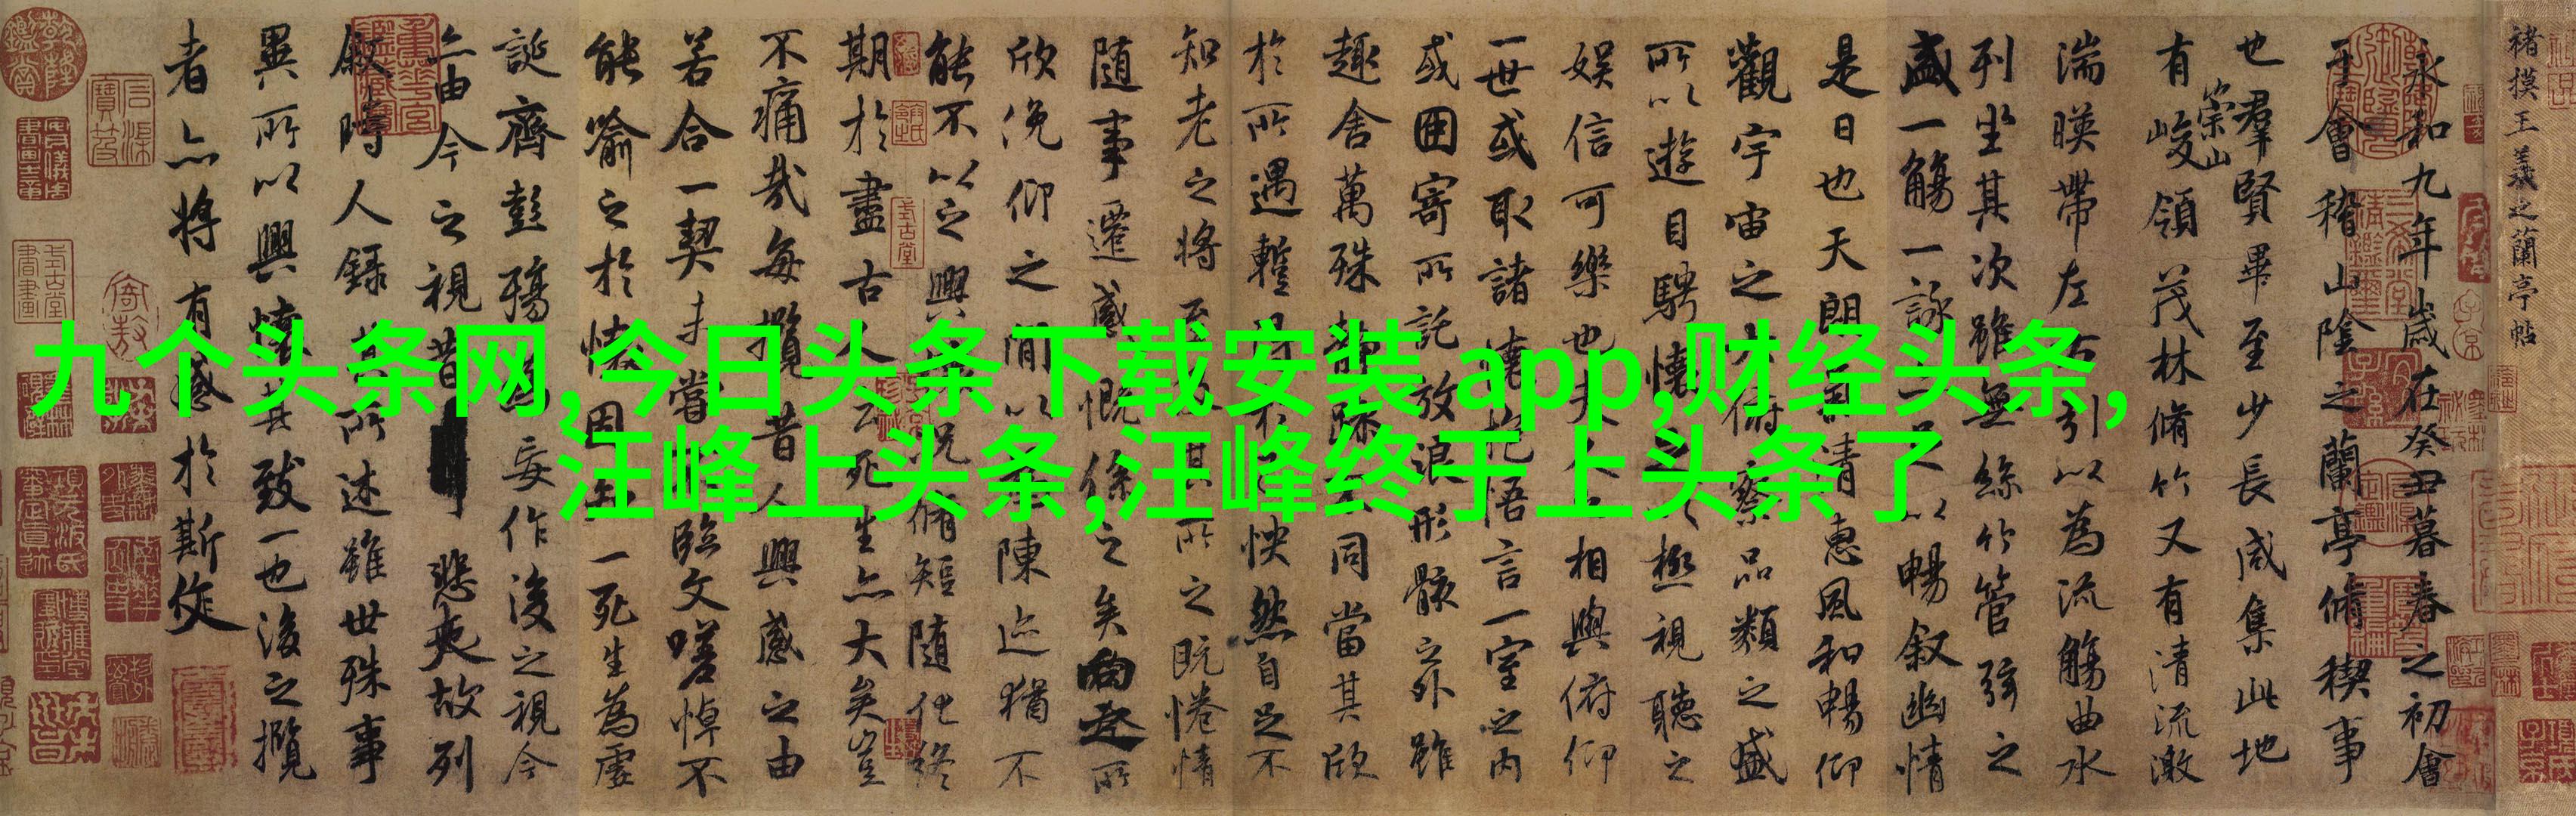 九个头条网,今日头条下载安装 app,财经头条,
汪峰上头条,汪峰终于上头条了
褚摸王羲之蘭亭帖
永和九年歲在癸丑暮春之初會
于會稽山陰之蘭亭脩稧事
也羣賢畢至少長咸集此地
有崇山峻領茂林脩竹又有清流激
湍暎帶左右引以為流觴曲水
列坐其次雖無絲竹管弦之
盛一觴一詠亦足以暢叙幽情
是日也天朗氣清惠風和暢仰
觀宇宙之大俯察品類之盛
所以遊目騁懷足以極視聽之
娛信可樂也夫人之相與俯仰
一世或取諸懷抱悟言一室之內
或因寄所託放浪形骸之外雖
趣舍萬殊靜躁不同當其欣
於所遇暫得於己怏然自足不
知老之將至及其所之既惓情
隨事遷感慨係之矣向之所
欣俛仰之閒以為陳迹猶不
能不以之興懷況脩短隨化終
期於盡古人云死生亦大矣豈
不痛哉每攬昔人興感之由
若合一契未嘗不臨文嗟悼不
能喻之於懷固知一死生為虛
誕齊彭殤為妄作後之視今
亦由今之視昔悲夫故列
叙時人錄其所述雖世殊事
異所以興懷其致一也後之攬
者亦將有感於斯文